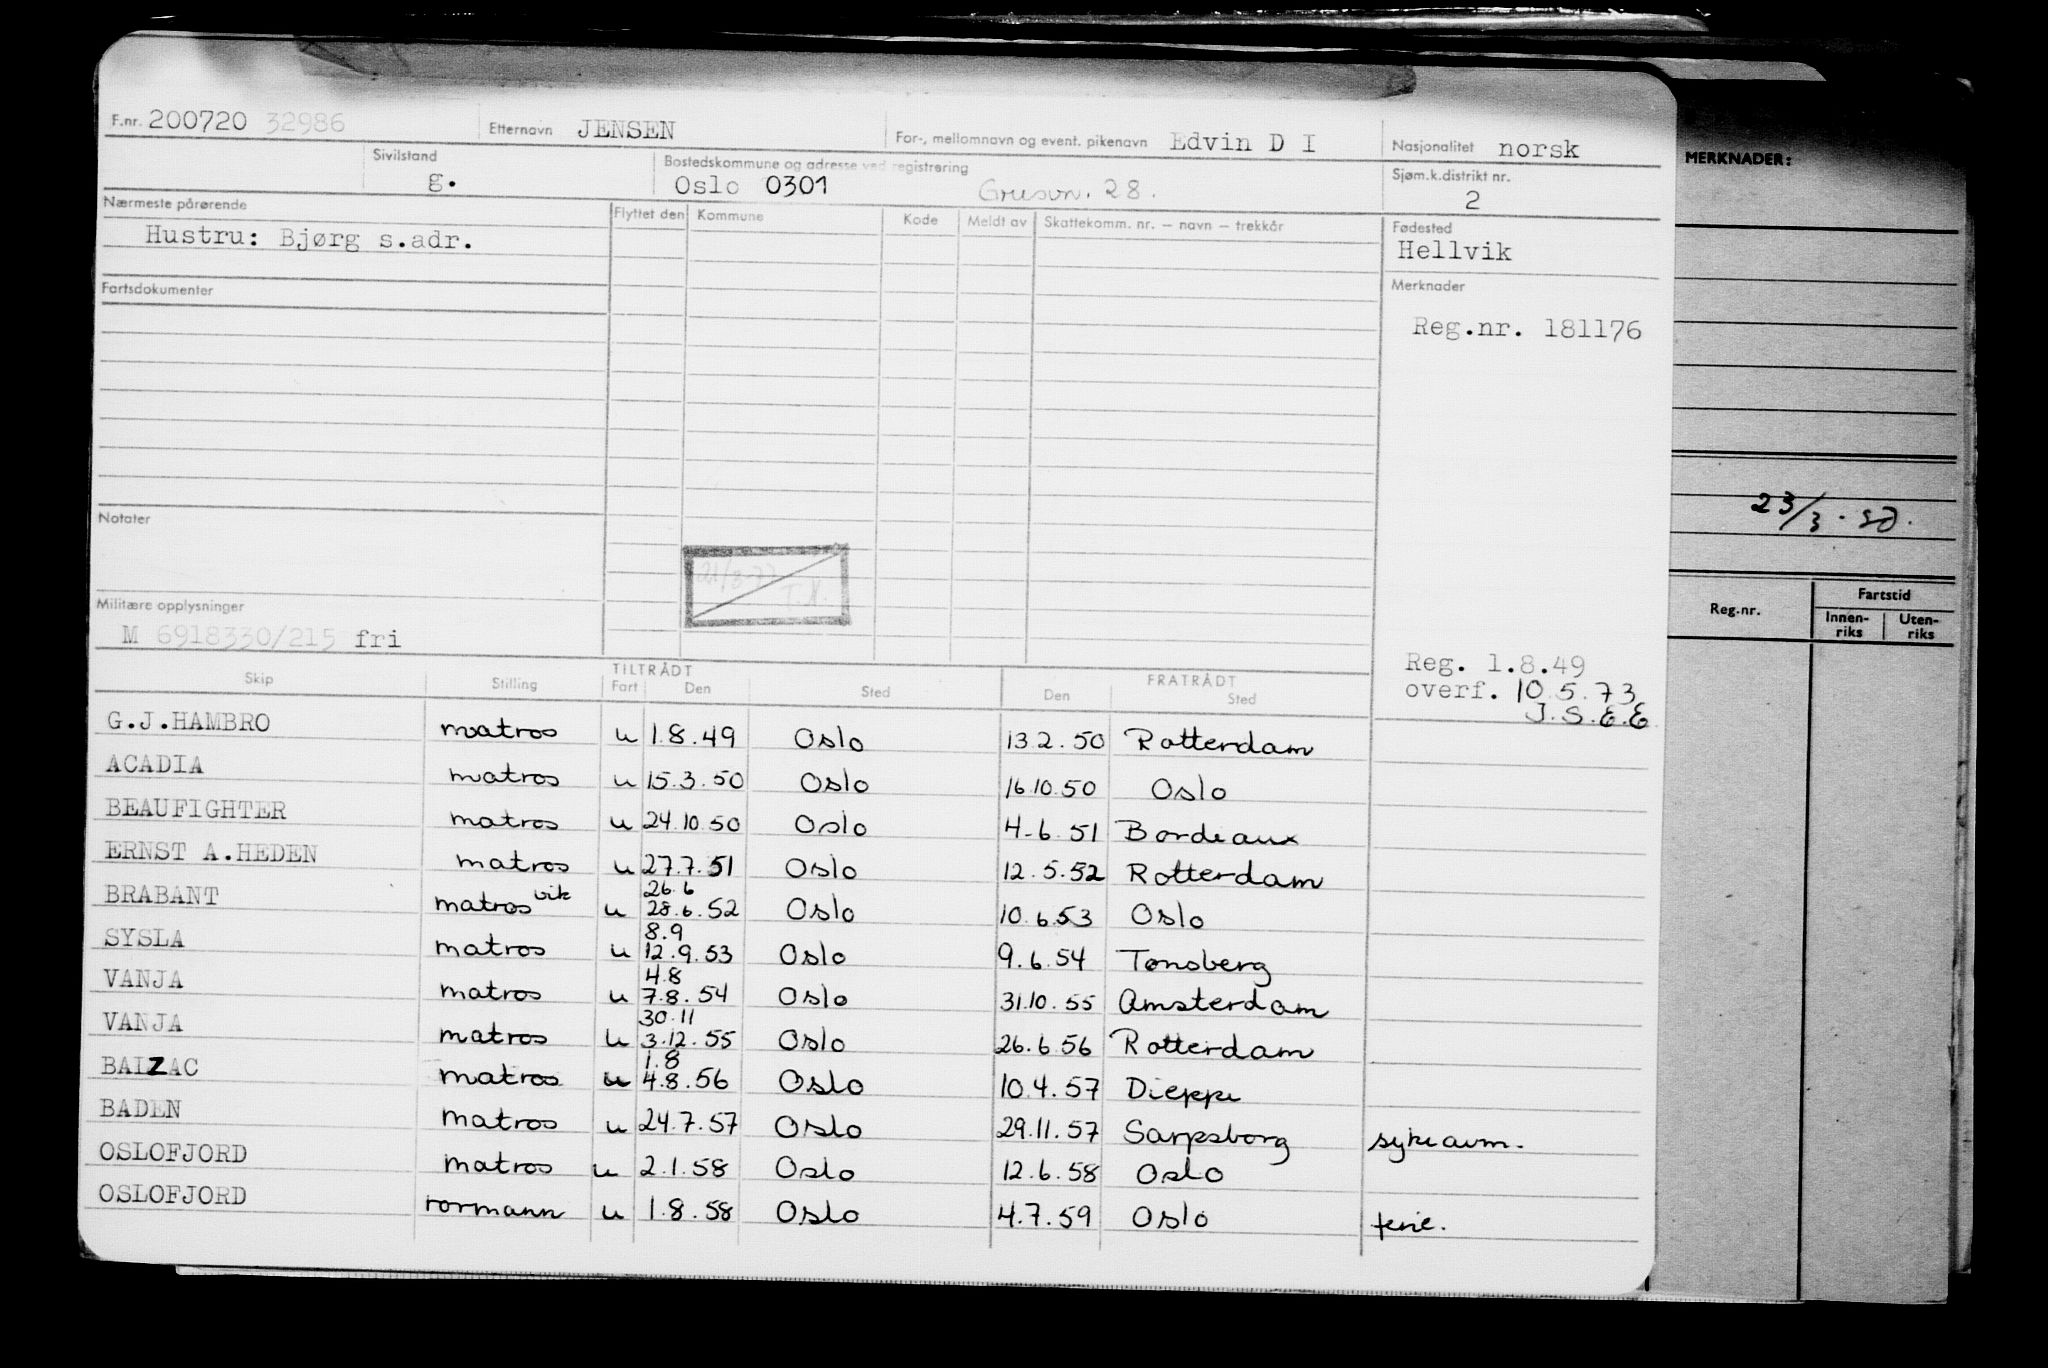 F.nr. 200720 32986 Etternavn JENSEN For-, mellomnavn og event. pikenavn Edvin D I Nasjonalitet norsk
Sivilstand g. Bostedskommune og adresse ved registrering Oslo 0301 28. Sjøm.k.distrikt nr. 2
Nærmeste pårørende Flyttet den Kommune Kode Meldt av Skattekomm. nr. – navn – trekkår Fødested
Hustru: Bjørg s.adr. Hellvik
Fartsdokumenter Merknader
Reg.nr. 181176
Notater
21/8-77
T.H.
Militære opplysninger
M 6918330/215 fri
Reg. 1.8.49
overf. 10.5.73
J.S.E.E.
Skip Stilling TILTRÅDT Fart Den Sted FRATRÅDT Den Sted
G.J.HAMBRO matros u 1.8.49 Oslo 13.2.50 Rotterdam
ACADIA matros u 15.3.50 Oslo 16.10.50 Oslo
BEAUFIGHTER matros u 24.10.50 Oslo 4-6.51 Bordeaux
ERNST A.HEDEN matros u 27.7.51 Oslo 12.5.52 Rotterdam
26.6
BRABANT matros vik u 28.6.52 Oslo 10.6.53 Oslo
8.9
SYSLA matros u 12.9.53 Oslo 9.6.54 Tønsberg
4.8
VANJA matros u 7.8.54 Oslo 31.10.55 Amsterdam
30.11
VANJA matros u 3.12.55 Oslo 26.6.56 Rotterdam
1.8
BALZAC matros u 4.8.56 Oslo 10.4.57 Dieppe
BADEN matros u 24.7.57 Oslo 29.11.57 Sarpsborg sykeavm.
OSLOFJORD matros u 2.1.58 Oslo 12.6.58 Oslo
OSLOFJORD rormann u 1.8.58 Oslo 4.7.59 Oslo ferie.
MERKNADER:
23/3.
Reg.nr. Fartstid
Innen-riks Uten-riks